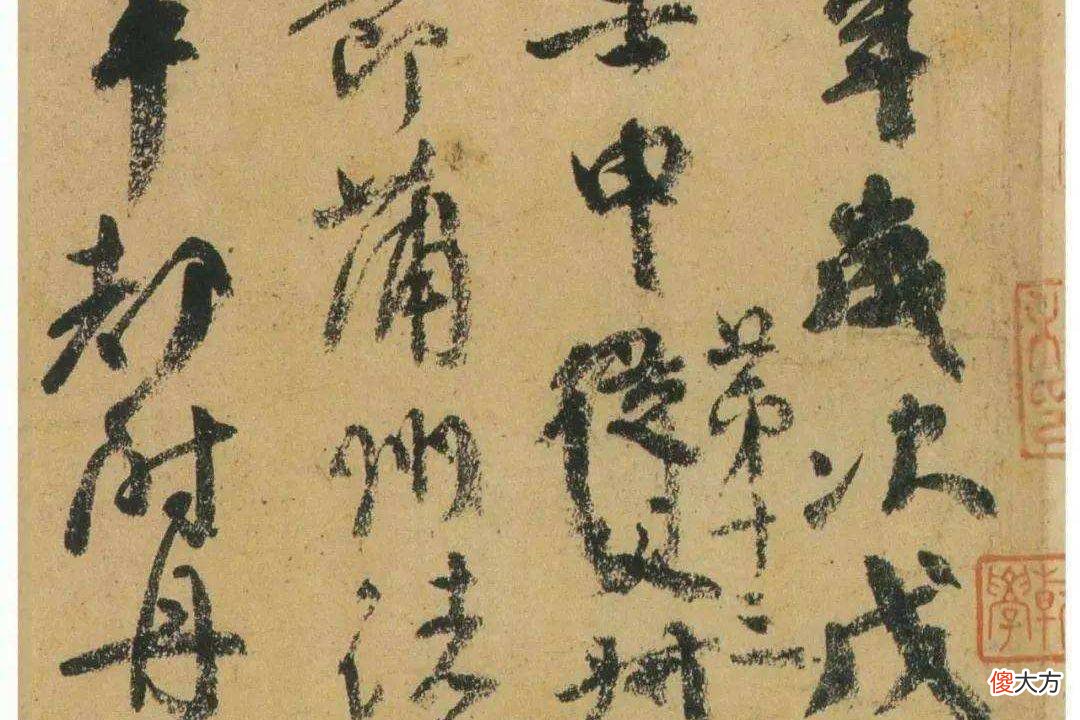 年歲次戊
第十三
壬申從父叔
節蒲州諸
車都尉丹
乾學
傻大方